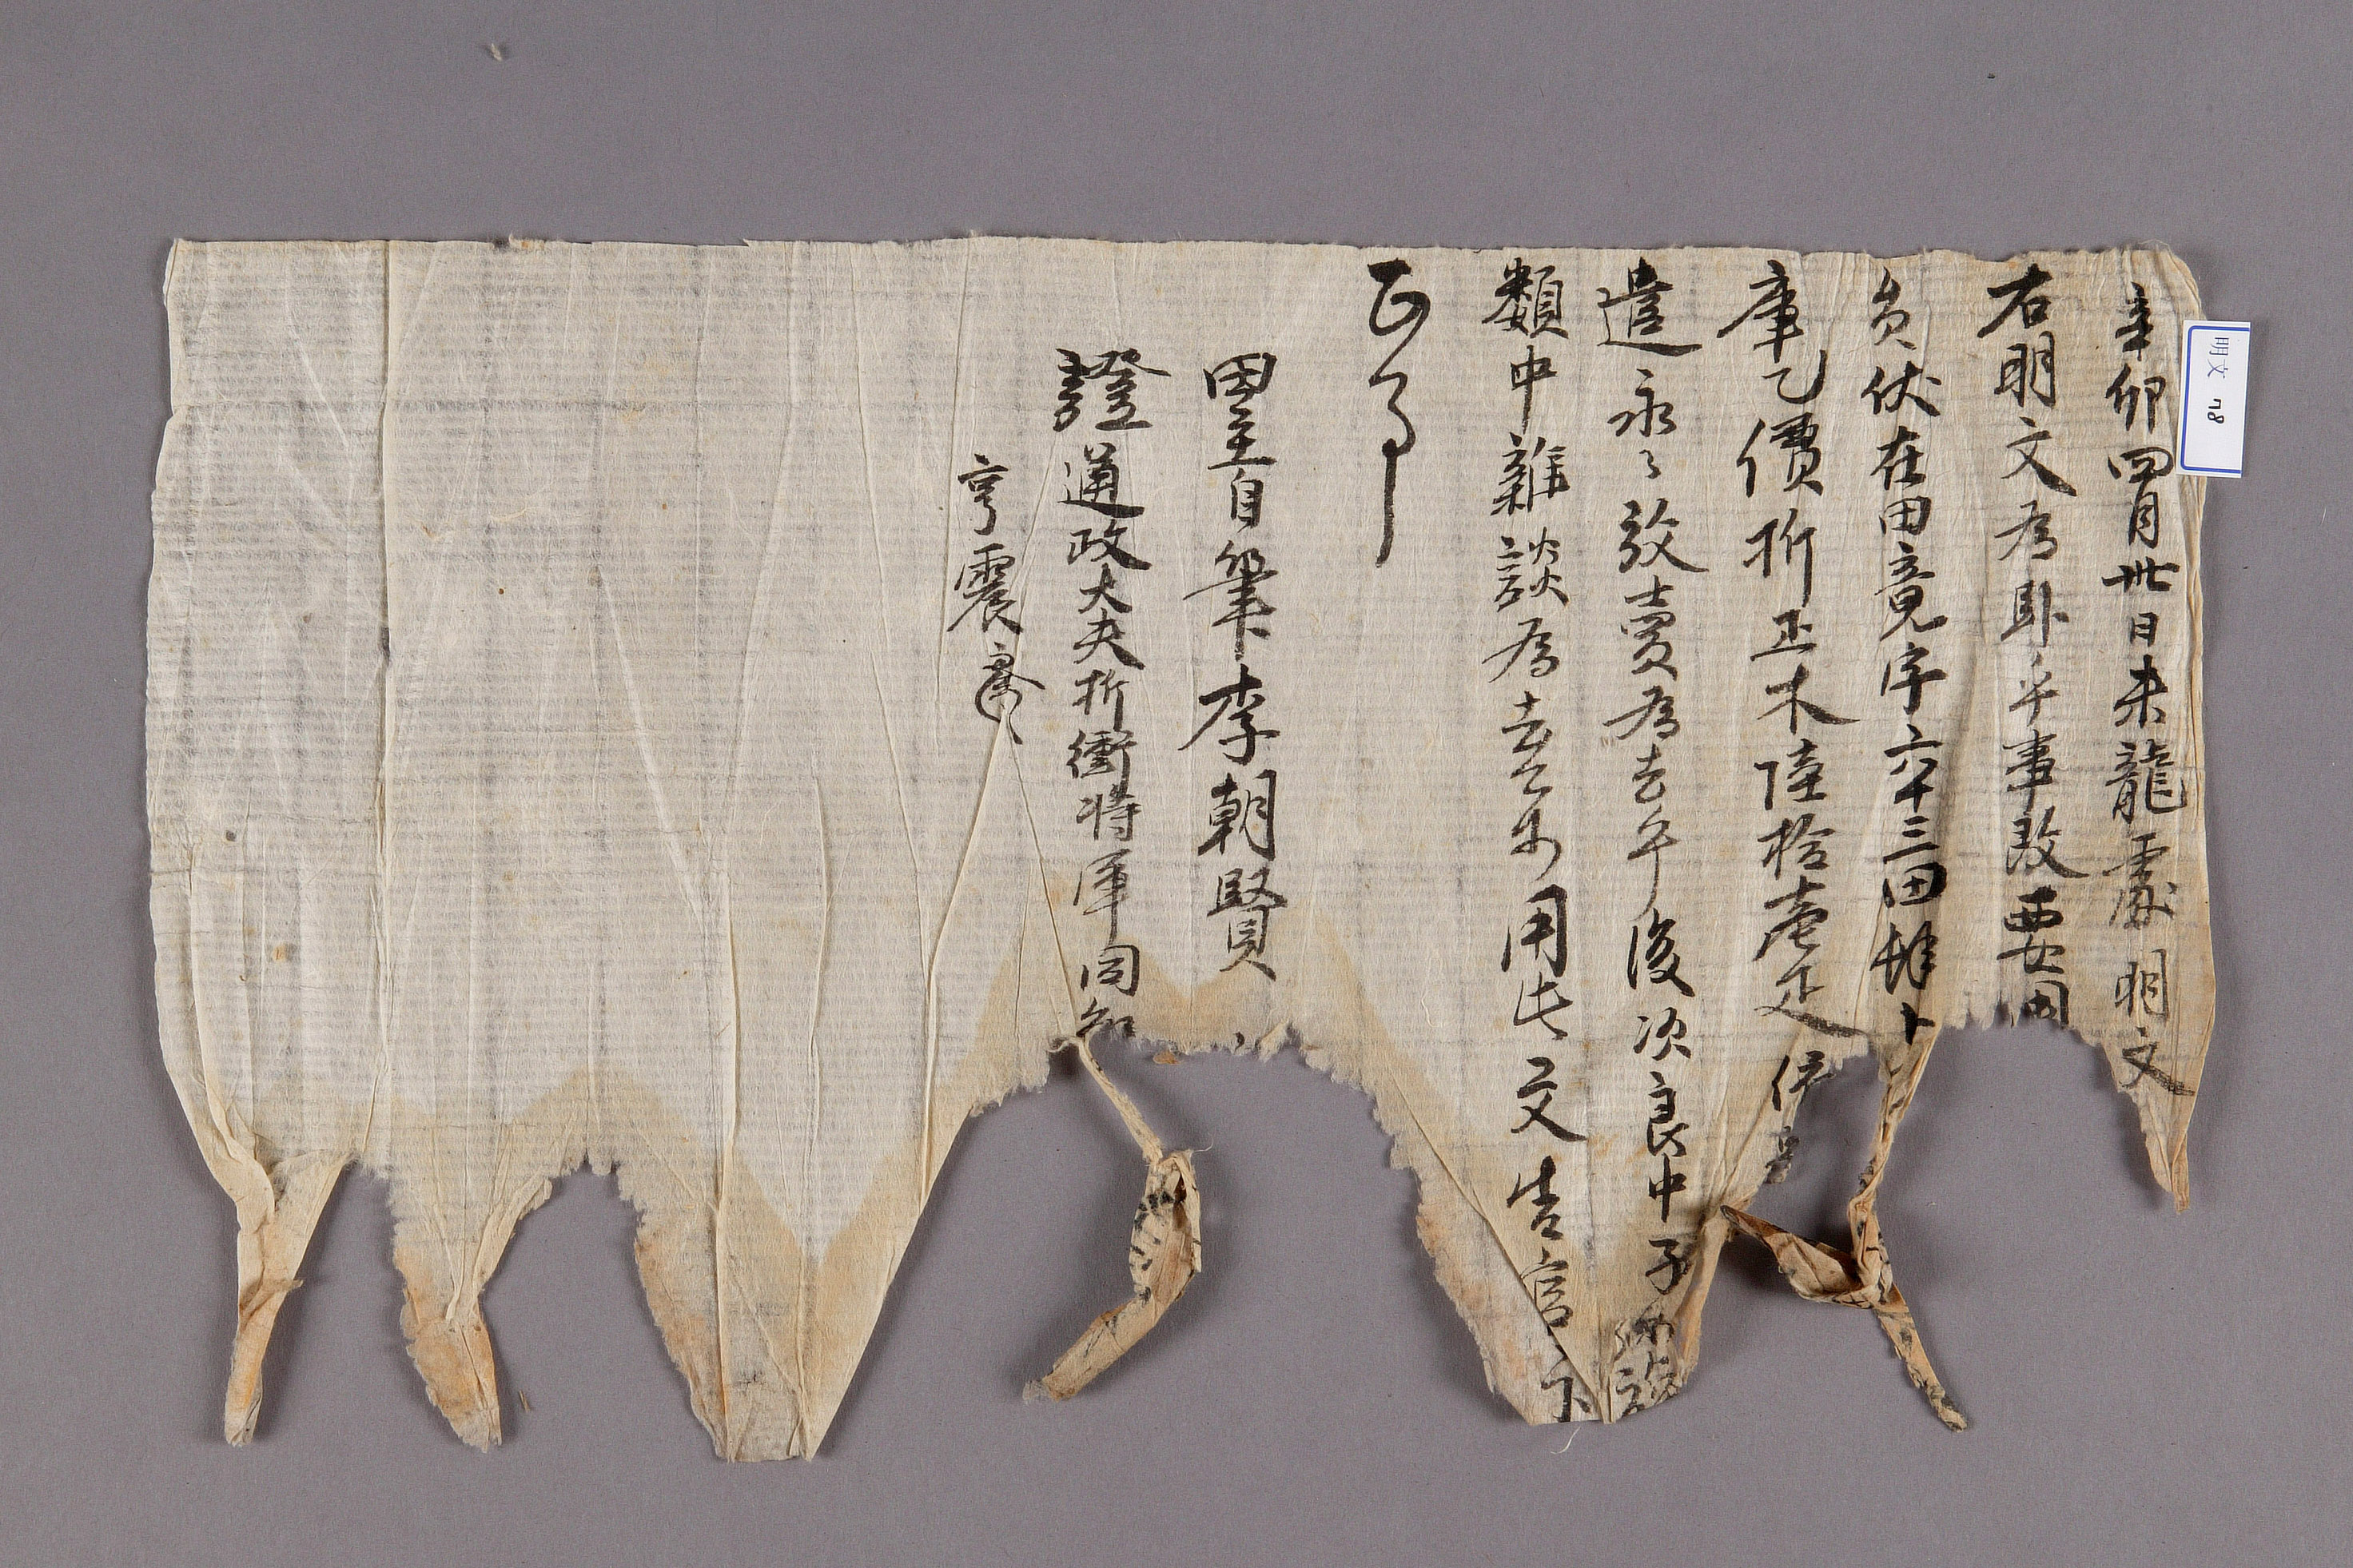 辛卯四月卅日末龍處明文
右明文為臥乎事段要用
員伏在田竟字六十三田肆卜
庫乙價折正木陸拾壹疋依
遣永〃放賣為去乎後次良中子
類中雜談為去乙等用此文告官卞
正事
田主自筆李朝賢
證通政大夫折衝將軍同知
亨震
明文 78